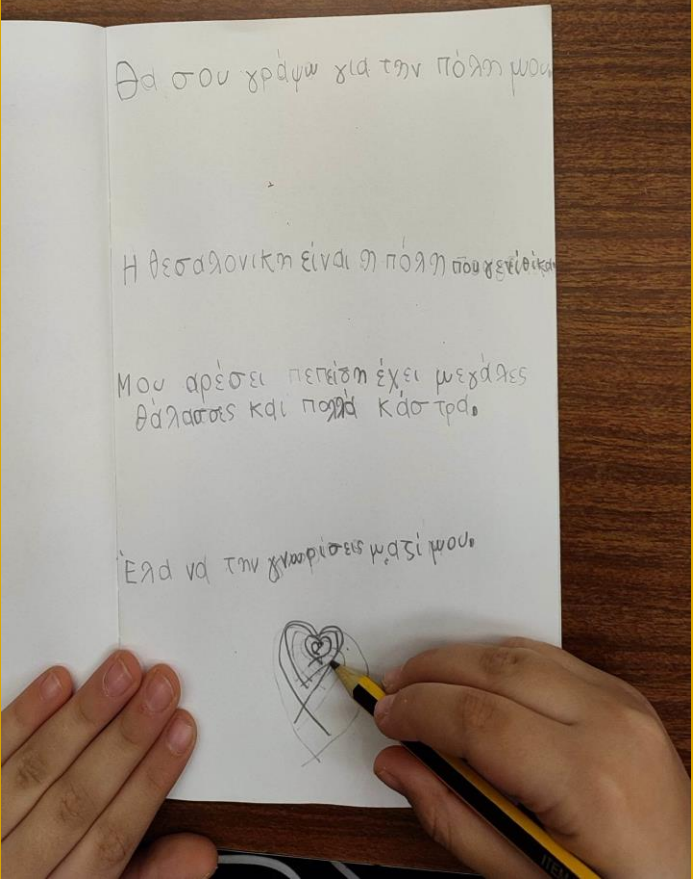 Θα σου γράψω για την πόλη μου.
Η θεσαλονικη είναι η πόλη που γενίθικα
Μου αρέσει πεπείδη έχει μεγάλες
θάλασσες και πολλά κάστρα.
Έλα να την γνωρίσεις μαζί μου.